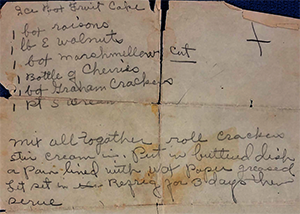 Ice Box Fruit Cake
1 box raisons
1 lb E walnuts
1 box marshmellow Cut
1 Bottle of Cherries
1 box Graham Crackers
1 pt S cream
mix all together roll crackers
stir cream in. Put in buttered dish
a Pan lined with wax Paper greased
Let set in Refrig for 3 days then
serve